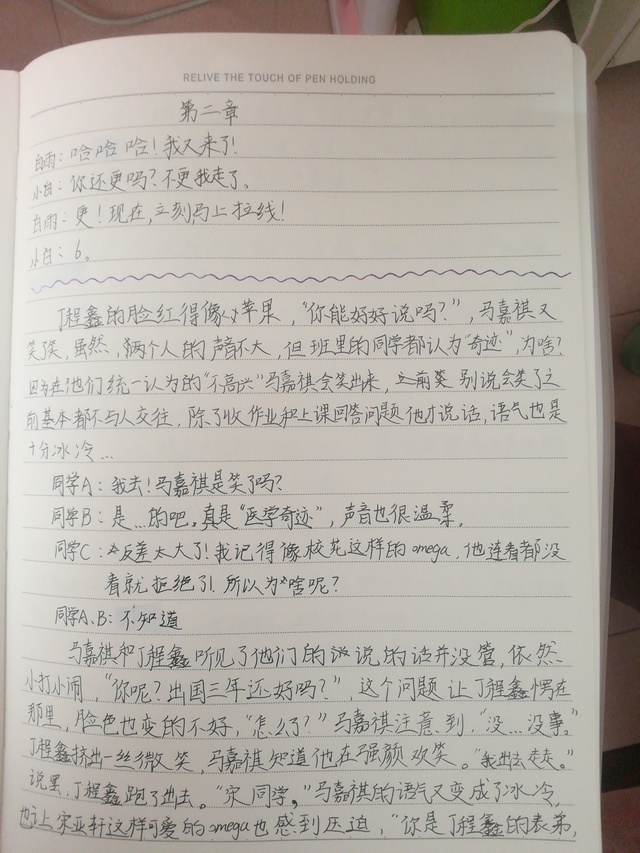 RELIVE THE TOUCH OF PEN HOLDING
第二章
白雨：哈哈哈！我又来了！
小白：你还更吗？不更我走了。
白雨：更！现在,立刻,马上拉线！
小白：6。
丁程鑫的脸红得像苹果，“你能好好说吗？”，马嘉祺又
笑了笑，虽然，两个人的声音不大，但班里的同学都认为“奇迹”，为啥？
因为在他们统一认为的“不高兴”马嘉祺会笑出来，之前笑 别说会笑了之
前基本都不与人交往，除了收作业和上课回答问题他才说话，语气也是
十分冰冷...
同学A：我去！马嘉祺是笑了吗？
同学B：是...的吧。真是“医学奇迹”，声音也很温柔。
同学C：反差太大了！我记得像校花这样的omega，他连看都没
看就拒绝了！所以为啥呢？
同学A、B：不知道
马嘉祺和丁程鑫听见了他们的说的话并没管，依然
小打小闹，“你呢？出国三年还好吗？”，这个问题让丁程鑫愣在
那里，脸色也变的不好，“怎么了？”马嘉祺注意到，“没...没事。”
丁程鑫挤出一丝微笑，马嘉祺知道他在强颜欢笑。“我出去走走。”
说罢，丁程鑫跑了出去。“宋同学。”马嘉祺的语气又变成了冰冷，
也让宋亚轩这样可爱的omega也感到压迫，“你是丁程鑫的表弟，